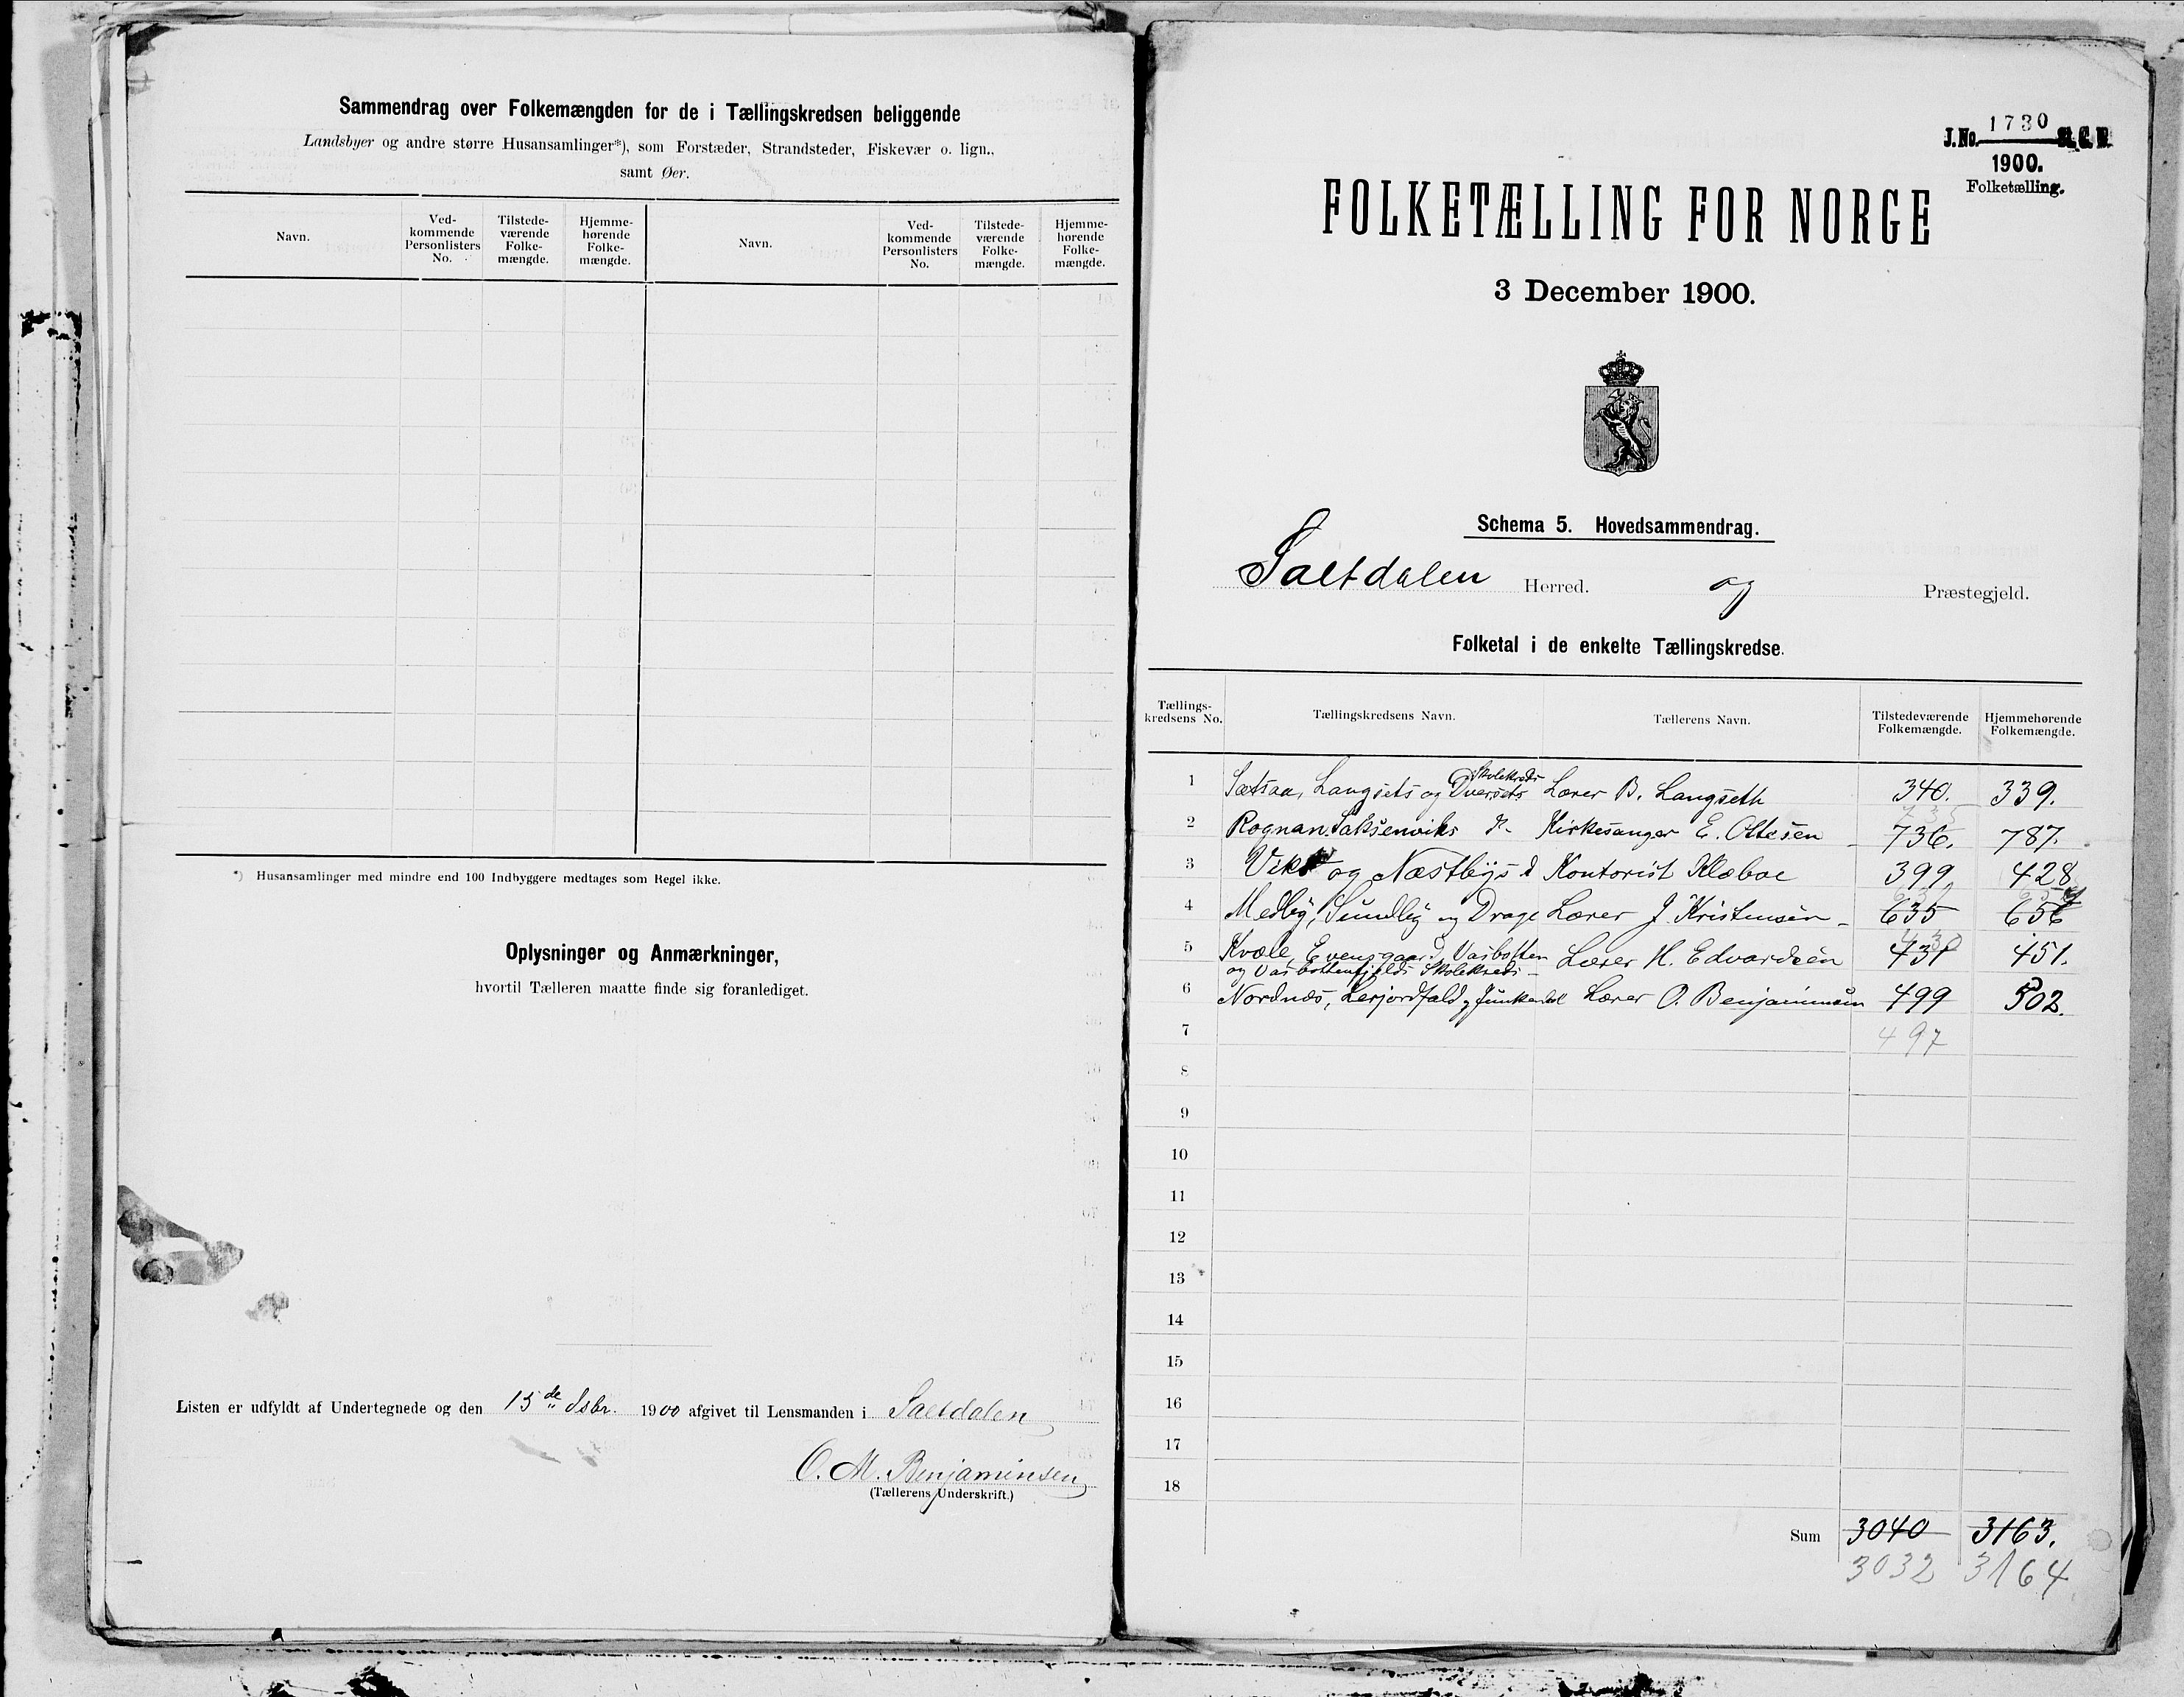 Sammendrag over Folkemængden for de i Tællingskredsen beliggende
Landsbyer og andre større Husansamlinger*), som Forstæder, Strandsteder, Fiskevær o. lign.,
samt Øer.
Navn. Ved-kommende Personlisters No. Tilstede-værende Folke-mængde. Hjemme-hørende Folke-mængde. Navn. Ved-kommende Personlisters No. Tilstede-værende Folke-mængde. Hjemme-hørende Folke-mængde.
*) Husansamlinger med mindre end 100 Indbyggere medtages som Regel ikke.
Oplysninger og Anmærkninger,
hvortil Tælleren maatte finde sig foranlediget.
Listen er udfyldt af Undertegnede og den 15de Dsbr. 1900 afgivet til Lensmanden i Saltdalen
O. M. Benjaminsen
(Tællerens Underskrift.)
J. No. 1730 St. C. B.
1900.
Folketælling.
FOLKETÆLLING FOR NORGE
3 December 1900.
Schema 5. Hovedsammendrag.
Saltdalen Herred. og Præstegjeld.
Folketal i de enkelte Tællingskredse.
Tællings-kredsens No. Tællingskredsens Navn. Tællerens Navn. Tilstedeværende Folkemængde. Hjemmehørende Folkemængde.
Skolekreds
1 Sætsaa, Langsets og Dversets Lærer B. Langseth 340. 339.
735
2 Rognan Saksenviks Kirkesanger E. Ottesen 736. 787.
3 Viks og Næstbys Kontorist Klæboe 399 428
631
4 Medby, Sundby og Drage Lærer J. Kristensen 635 656
430
5 Kvæle, Evensgaard, Vasbotten Lærer H. Edvardsen 431 451.
og Vasbottenfjelds Skolekreds
6 Nordnæs, Lerjordfald og Junkerdal Lærer O. Benjaminsen 499 502.
7 497
8
9
10
11
12
13
14
15
16
17
18
Sum 3040 3163.
3032 3164